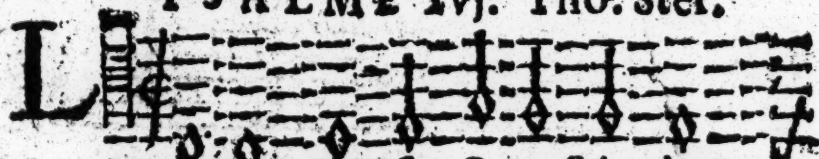 PSALME lvj. Tho. Ster.
L